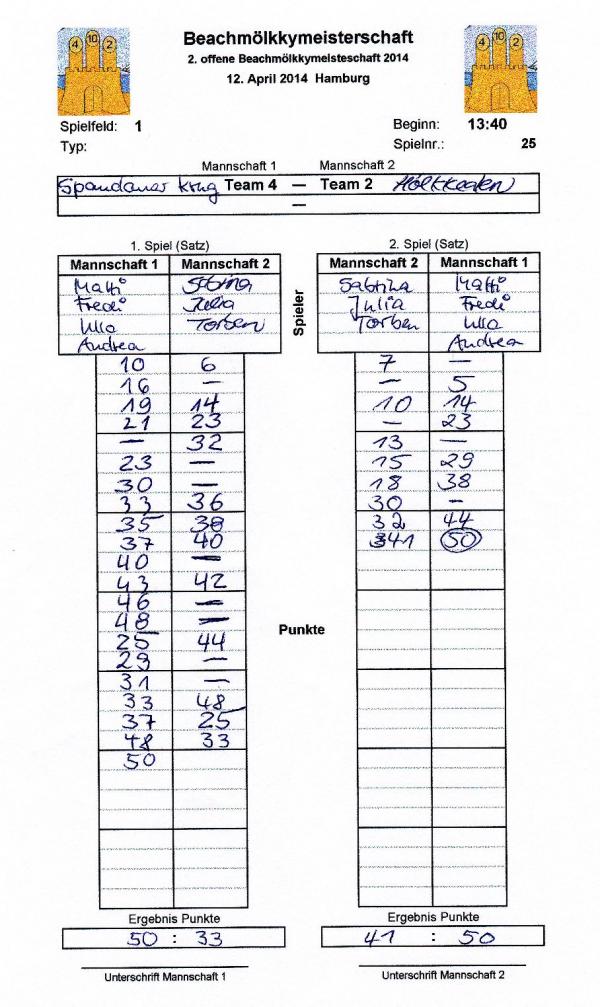 Beachmölkkymeisterschaft
2. offene Beachmölkkymeisteschaft 2014
12. April 2014 Hamburg
4 10 2
4 10 2
Spielfeld: 1 Beginn: 13:40
Typ: Spielnr.: 25
Mannschaft 1 Mannschaft 2
Spandauer Krug Team 4 — Team 2
—
1. Spiel (Satz) 2. Spiel (Satz)
Mannschaft 1 Mannschaft 2 Spieler Mannschaft 2 Mannschaft 1
Matti Sabrina Sabrina Matti
Fredi Julia Julia Fredi
Ulla Torben Torben Ulla
Andrea Andrea
10 6 7 —
16 — — 5
19 14 10 14
21 23 — 23
— 32 13 —
23 — 15 29
30 — 18 38
33 36 30 —
35 38 32 44
37 40 41 50
40 —
43 42
46 —
48 —
Punkte
25 44
29 —
31 —
33 48
37 25
48 33
50
Ergebnis Punkte Ergebnis Punkte
50 : 33 41 : 50
Unterschrift Mannschaft 1 Unterschrift Mannschaft 2